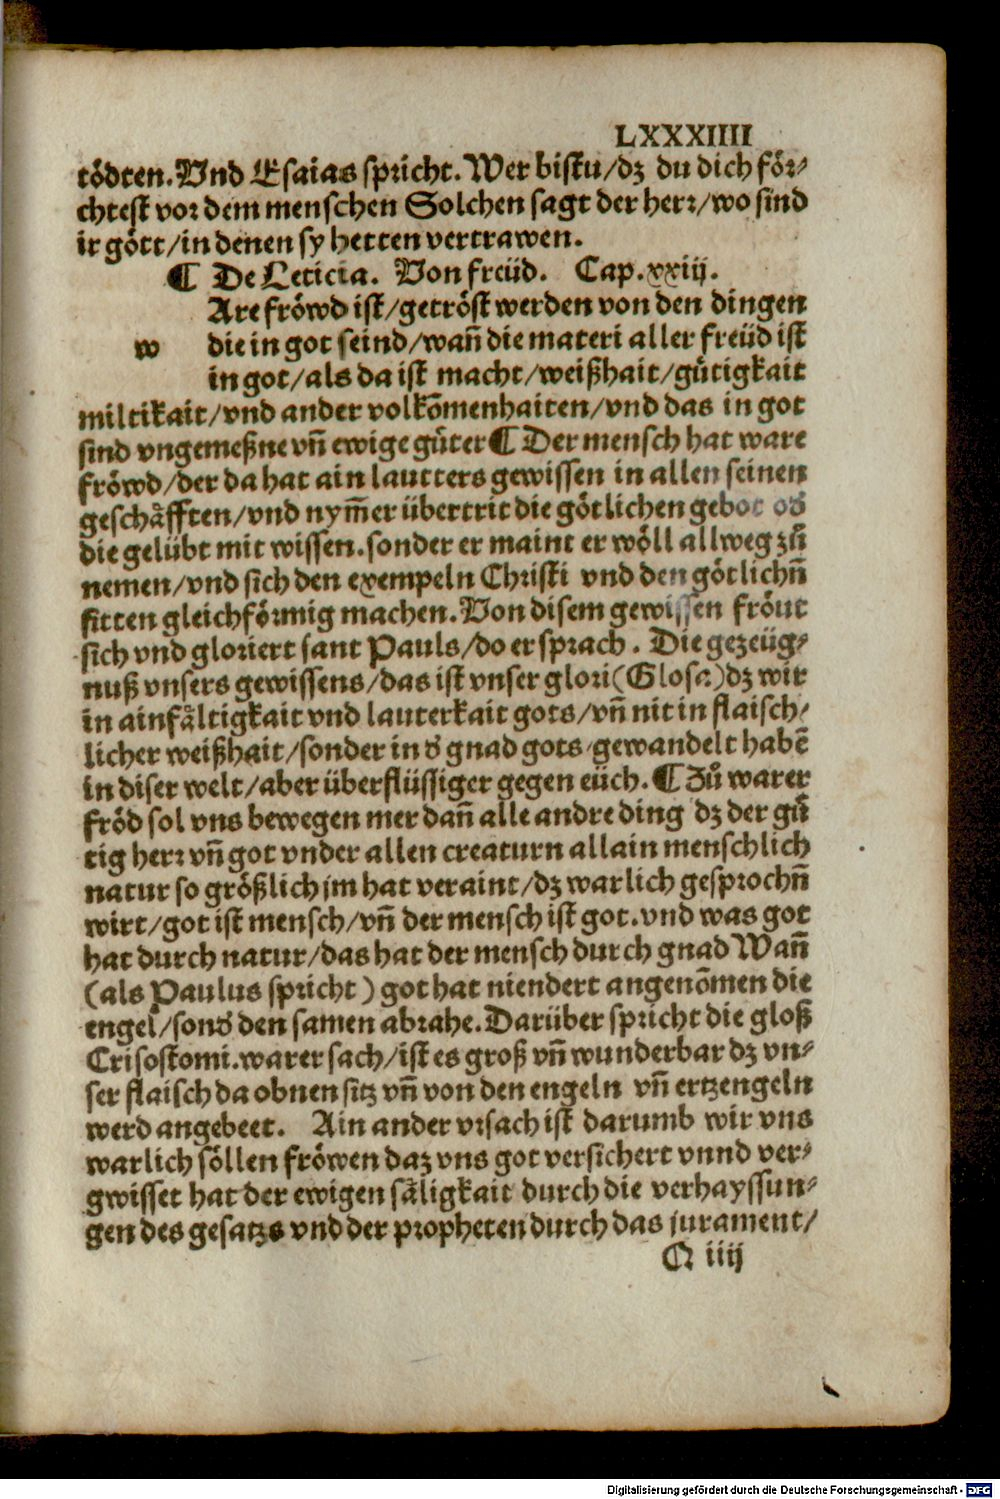 LXXXIIII
tödten. Vnd Esaias spricht. Wer bistu/dz du dich för⸗
chtest vor dem menschen Solchen sagt der herr/wo sind
ir gött/in denen sy hetten vertrawen.
¶ De Leticia. Von freüd. Cap. xxiij.
Are fröwd ist/getröst werden von den dingen
w die in got seind/wañ die materi aller freüd ist
in got/als da ist macht/weißhait/gütigkait
miltikait/vnd ander volkōmenhaiten/vnd das in got
sind vngemeßne vñ ewige gůter ¶ Der mensch hat ware
fröwd/der da hat ain lautters gewissen in allen seinen
geschäfften/vnd nym̄er übertrit die götlichen gebot od̓
die gelübt mit wissen. sonder er maint er wöll allweg zů
nemen/vnd sich den exempeln Christi vnd den götlichñ
sitten gleichförmig machen. Von disem gewissen fröut
sich vnd gloriert sant Pauls/do er sprach. Die gezeüg⸗
nuß vnsers gewissens/das ist vnser glori (Glosa) dz wir
in ainfältigkait vnd lauterkait gots/vñ nit in flaisch/
licher weißhait/sonder in d̓ gnad gots/gewandelt habē
in diser welt/aber überflüssiger gegen eüch. ¶ Zů warer
fröd sol vns bewegen mer dañ alle andre ding dz der gů
tig herr vñ got vnder allen creaturn allain menschlich
natur so größlich jm hat veraint/dz warlich gesprochñ
wirt/got ist mensch/vñ der mensch ist got. vnd was got
hat durch natur/das hat der mensch durch gnad Wañ
(als Paulus spricht) got hat niendert angenōmen die
engel/sond̓ den samen abrahe. Darüber spricht die gloß
Crisostomi. warer sach/ist es groß vñ wunderbar dz vn⸗
ser flaisch da obnen sitz vñ von den engeln vñ ertzengeln
werd angebeet. Ain ander vrsach ist darumb wir vns
warlich söllen fröwen daz vns got versichert vnnd ver⸗
gwisset hat der ewigen säligkait durch die verhayssun⸗
gen des gesatzs vnd der propheten durch das jurament/
Q iiij
Digitalisierung gefördert durch die Deutsche Forschungsgemeinschaft - DFG